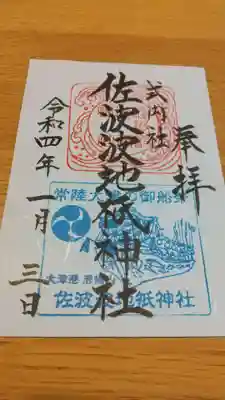 奉拝
式内社
佐波波地祇神社
令和四年一月三日
常陸大津の御船祭
大津港
佐波波地祇神社